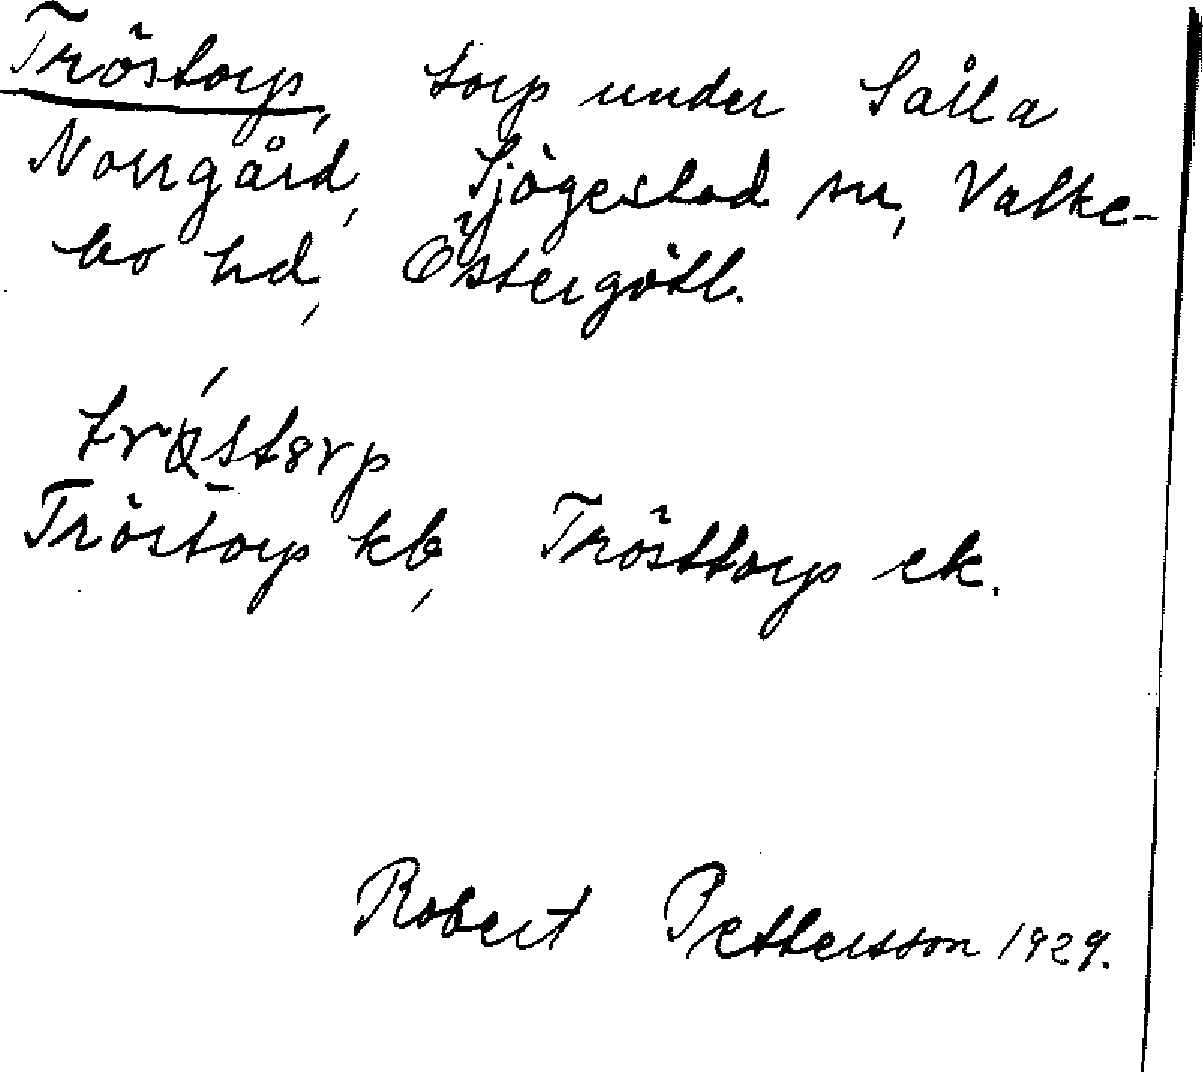 Tröstorp, torp under Sålla
Norrgård, Sjögestad sn, Valke-
bo hd, Östergötl.
Tröstorp kb, Trösttorp ek.
Robert Pettersson 1929.